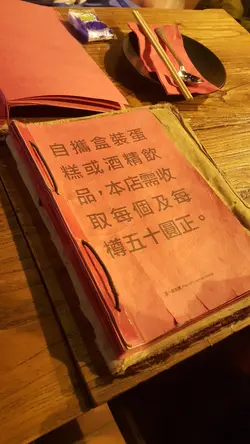 自攜盒裝蛋
糕或酒精飲
品，本店需收
取每個及每
樽五十圓正。